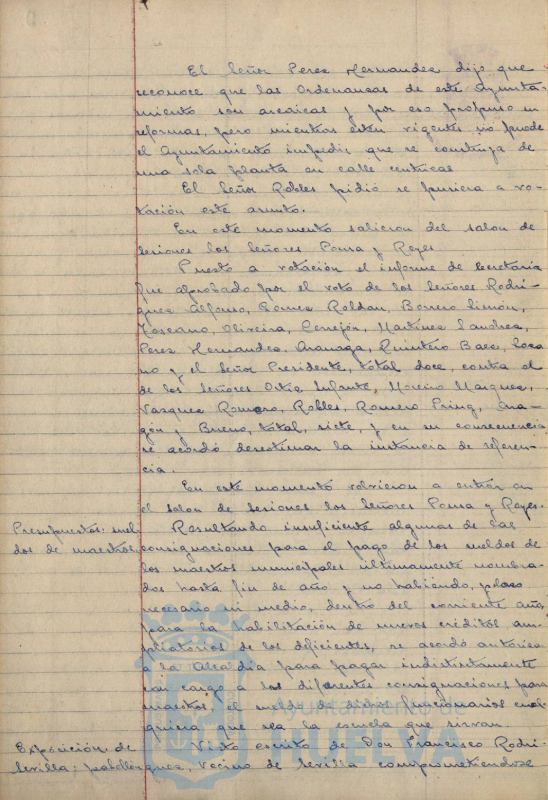 El Señor Perez Hernandez dijo que
reconoce que las Ordenanzas de este Ayunta-
miento son arcaicas y por eso propuso su
reformas, pero mientras esten vigentes no puede
el Ayuntamiento impedir que se construya de
una sola planta en calles centricas
El Señor Robles pidió se pusiera a vo-
tación este asunto.
En este momento salieron del salon de
sesiones los Señores Ponsa y Reyes.
Puesto a votación el informe de Secretaria
fue aprobado por el voto de los Señores Rodri-
guez Alfonso, Gomez Roldan, Borrero Limón,
Toscano, Oliveira, Cerrejón, Martinez Sanchez,
Perez Hernandez, Aranaga, Quintero Baez, Loza
no y el Señor Presidente, total doce, contra el
de los Señores Ortiz Infante, Moreno Marquez,
Vazquez Romero, Robles, Romero Pring, Ara-
gón y Bueno, total, siete, y en su consecuencia
se acordó desestimar la instancia de referen-
cia.
En este momento volvieron a entrar en
el salon de sesiones los Señores Ponsa y Reyes.
Presupuestos: suel-
dos de maestros.
Resultando insuficiente algunas de las
consignaciones para el pago de los sueldos de
los maestros municipales ultimamente nombra-
dos hasta fin de año y no habiendo, plazo
necesario ni medio, dentro del corriente año,
para la habilitación de nuevos créditos am-
pliatorios de los deficientes, se acordó autorizar
a la Alcaldia para pagar indistintamente
con cargo a las diferentes consignaciones para
maestros, el sueldo de dichos funcionarios cual
quiera que sea la escuela que sirvan.
Exposición de
Sevilla: pabellón
Visto escrito de Don Francisco Rodri-
guez, vecino de Sevilla comprometiendose
Ayuntamiento de
HUELVA